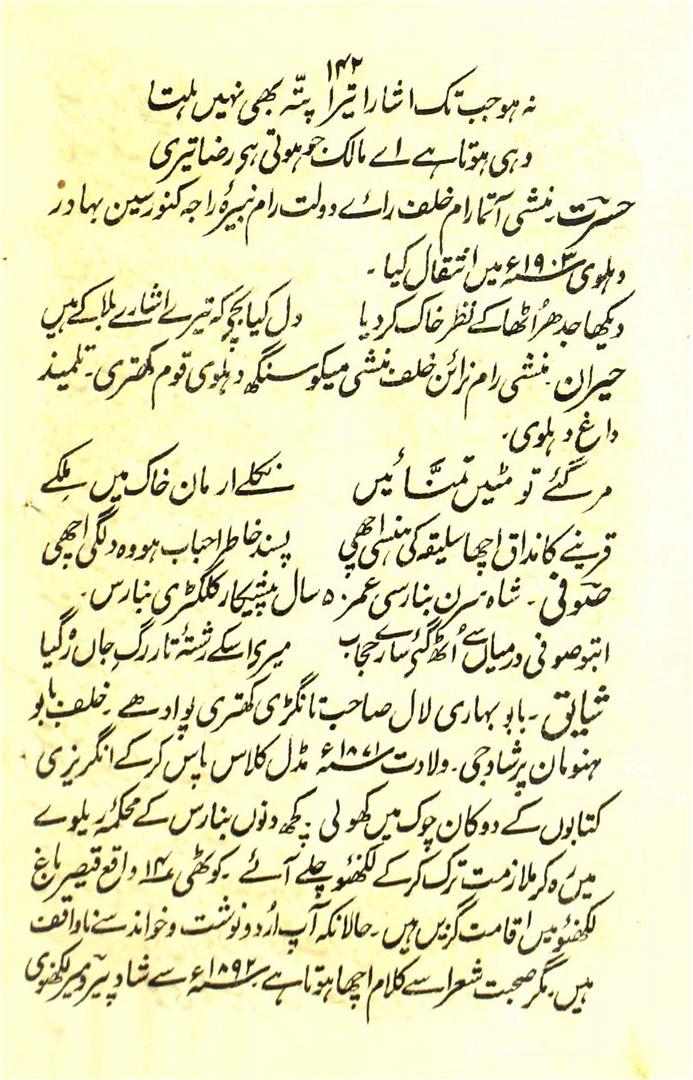 ۱۴۲
نہ ہو جب تک اشارا تیرا پتّہ بھی نہیں ہلتا
وہی ہوتا ہے اے مالک جو ہوتی ہی رضا تیری
حسرت۔ منشی آتما رام خلف رائے دولت رام نبیرۂ راجہ کنور سین بہادر
دہلوی ۱۹۰۳ء میں انتقال کیا۔
دیکھا جدھر اُٹھا کے نظر خاک کر دیا    دل کیا بچے کہ تیرے اشارے بلا کے ہیں
حیران۔ منشی رام نرائن خلف منشی میکو سنگھ دہلوی قوم کھتری۔ تلمیذ
داغ دہلوی۔
مر گئے تو مٹیں تمنّائیں    نکلے ارمان خاک میں ملکے
قرینے کا مذاق اچھا سلیقہ کی ہنسی اچھی    پسند خاطر احباب ہو وہ دلگی اچھی
صوفی۔ شاہ سرن بنارسی عمر ۵۰ سال پیشکار کلکٹری بنارس۔
ابتو صوفی درمیاں سے اُٹھ گئی سارے حجاب    میری اسکے رشتۂ تار رگِ جاں رگیا
شایق۔ بابو بہاری لال صاحب تانگڑی کھتری پوادھے۔ خلف بابو
ہنومان پرشاد جی۔ ولادت ۱۸۷۱ء مڈل کلاس پاس کر کے انگریزی
کتابوں کے دوکان چوک میں کھولی۔ کچھ دنوں بنارس کے محکمۂ ریلوے
میں رہ کر ملازمت ترک کر کے لکھنؤ چلے آئے۔ کوٹھی ۱۴ واقع قیصر باغ
لکھنؤ میں اقامت گزیں ہیں۔ حالانکہ آپ اُردو نوشت و خواند سے ناواقف
ہیں۔ مگر صحبت شعرا سے کلام اچھا ہوتا ہے۔ ۱۸۹۲ء سے شاد پیرو میر لکھنوی